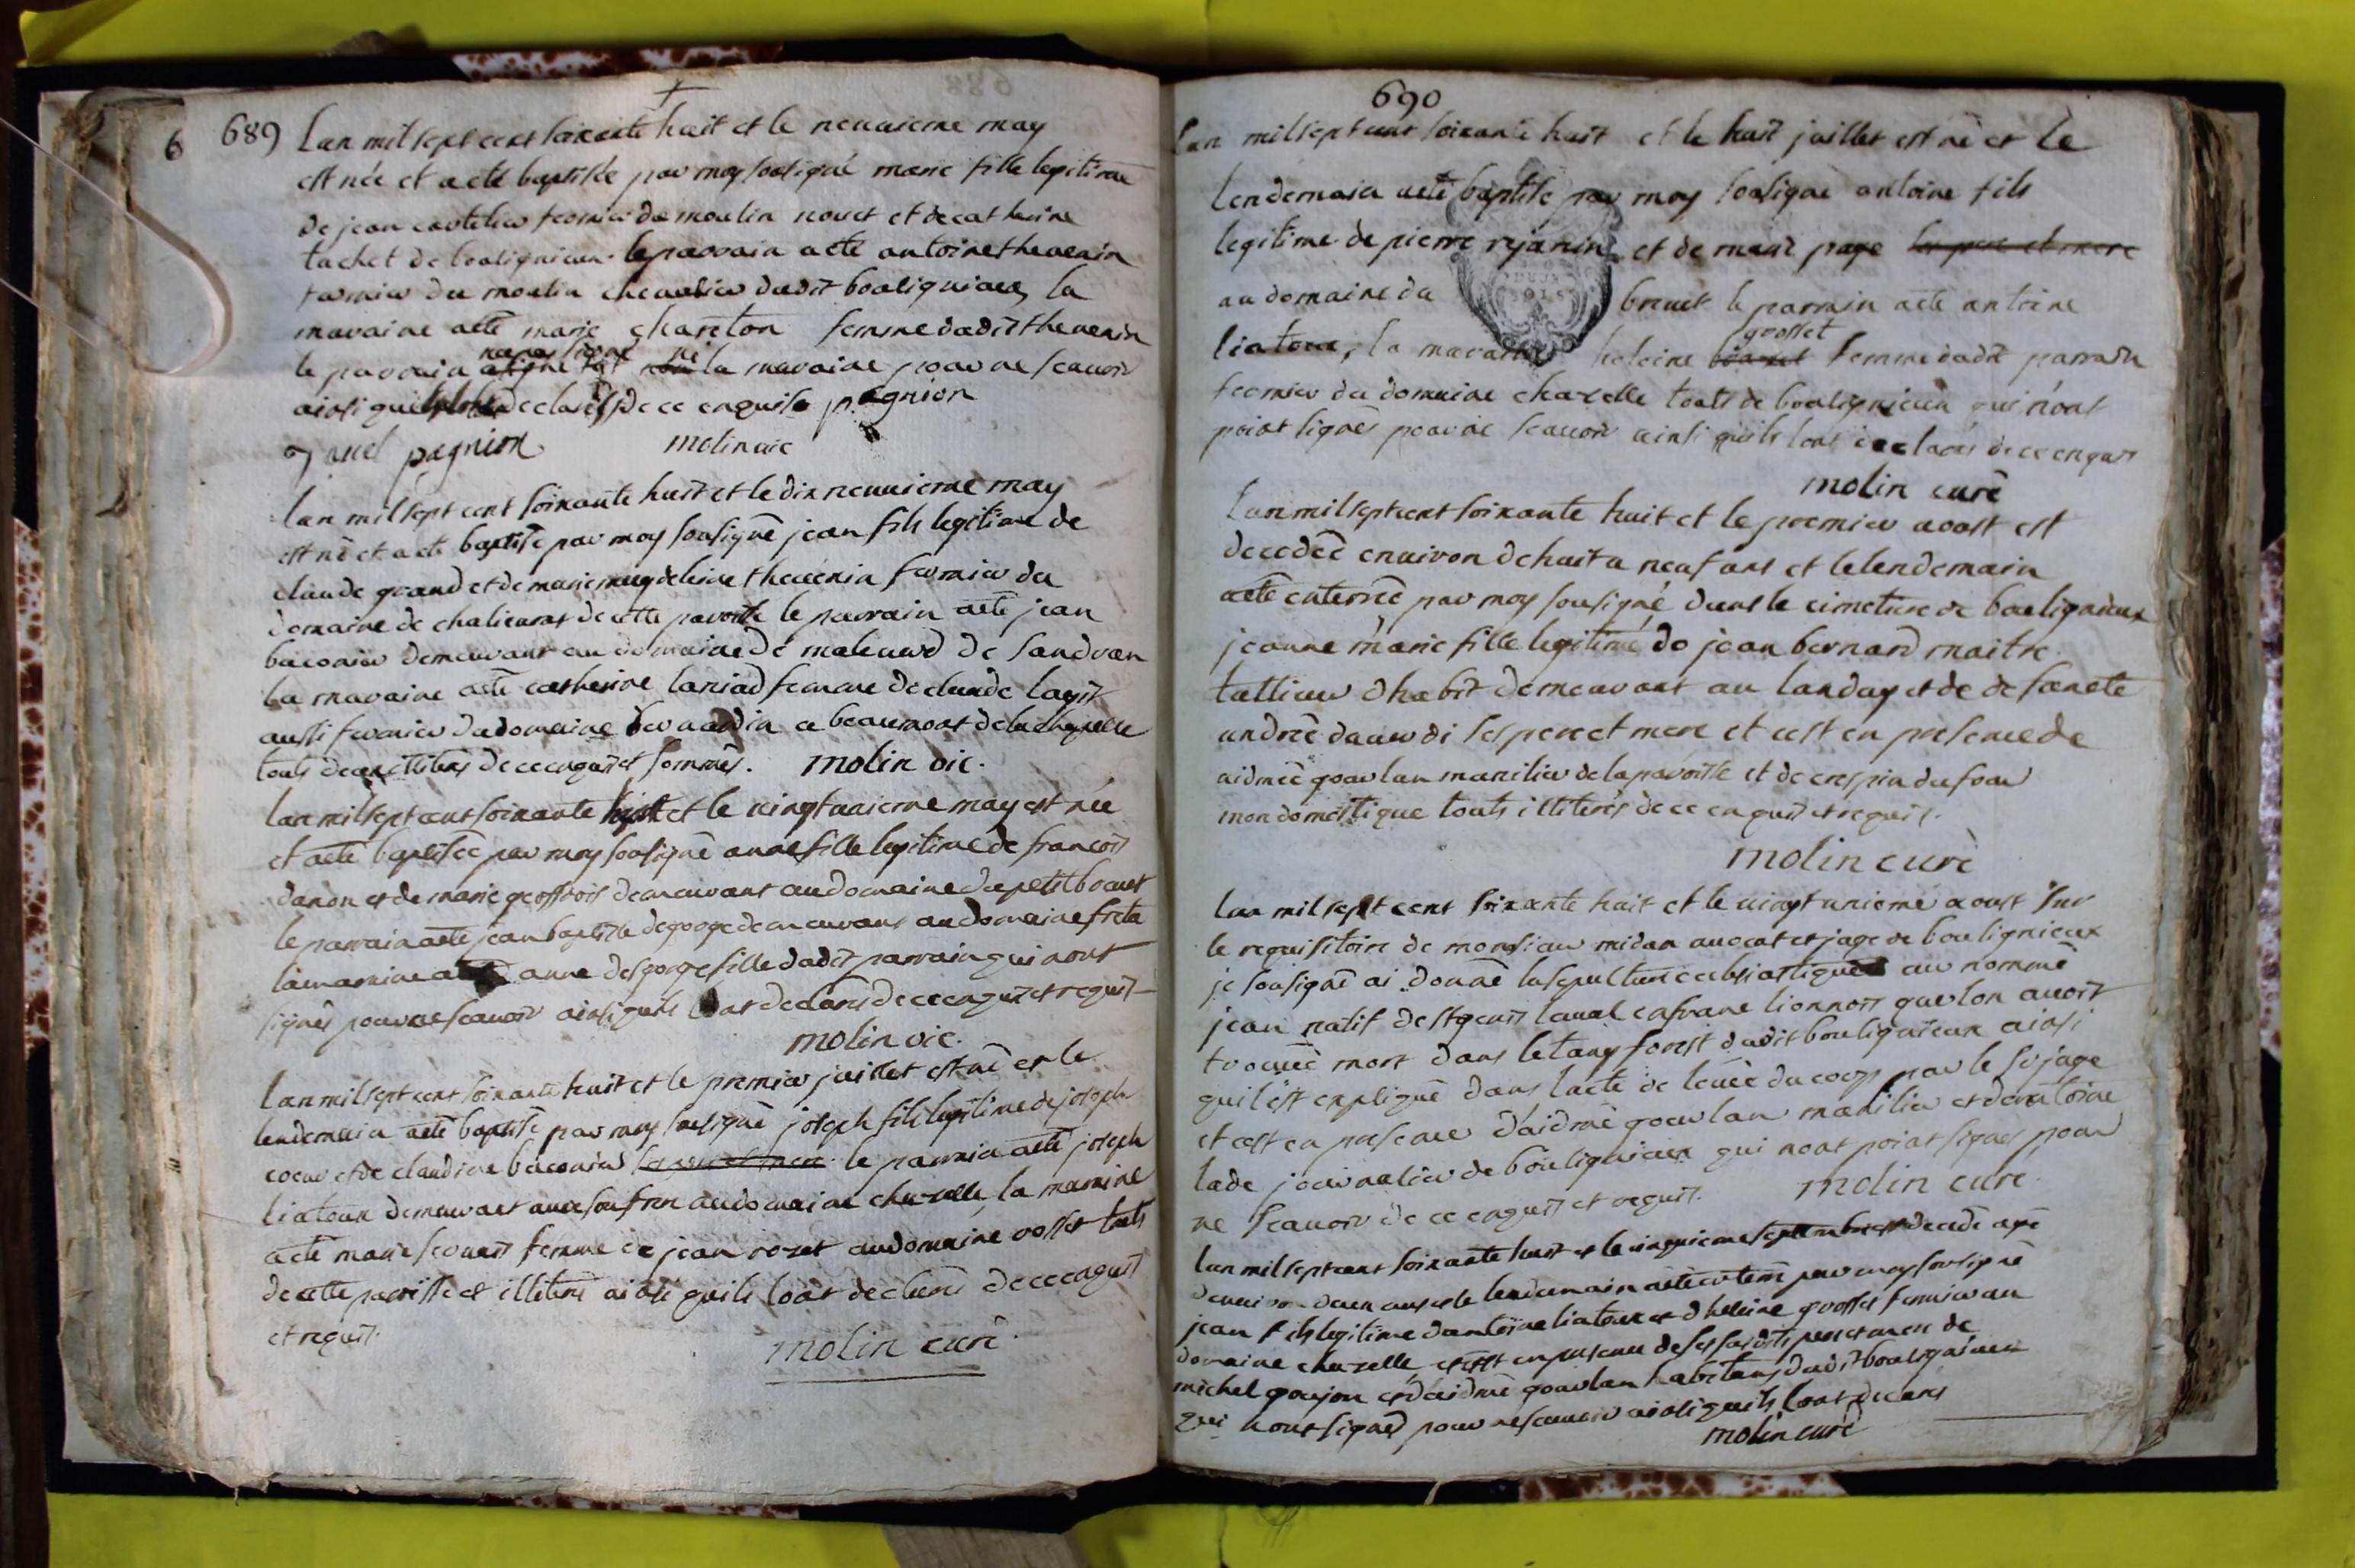 6 689
Lan mil sept cent soixante huit et le neuvieme may
est née et a eté baptisée par moy sousigné marie fille legitime
de jean cartelier fermier du moulin nouet et de catherine
tachet de bouligneux le parrain a eté antoine thevenin
fermier du moulin chevalier dudit bouligneux, la
maraine a eté marie chareton femme dudit thevenin
le parrain ne pas signé ni la maraine pour ne scavoir
ainsi quils lont declarés de ce enquis pagnion
pagnion molin vic
lan mil sept cent soixante huit et le dix neuvieme may
est né et a eté baptisé par moy sousigné jean fils legitime de
claude grand et de marie magdeleine thevenin fermier du
domaine de chalieures de cette paroisse le parrain a eté jean
baconier demeurant au domaine de maleuard de sandran
la maraine a eté catherine laniad femme de claude lagis
aussi fermier du domaine bernardin a beaumont de la chapelle
touts deux illiterés de ce enquis et sommés. molin vic.
lan mil sept cent soixante huit et le vingt unieme may est née
et a eté baptisée par moy sousigné anne fille legitime de francois
danon et de marie geoffrois demeurant au domaine du petit bouet
le parrain a eté jean baptiste degorge demeurant au domaine freta
la maraine a eté anne desgorge fille dudit parrain qui nont
signés pour ne scavoir ainsi quils lont declarés de ce enquis et requis
molin vic.
lan mil sept cent soixante huit et le premier juillet est né et le
lendemain a eté baptisé par moy sousigné joseph fils legitime de joseph
coeur et de claudine baconier ses pere et mere le parrain a eté joseph
liatoux demeurant avec son frere au domaine chazelle, la maraine
a eté marie femme de jean rozet au domaine rosset touts
de cette paroisse et illiterés ainsi quils lont declarés de ce enquis
et requis.
molin curé.
690
Lan mil sept cent soixante huit et le huit juillet est né et le
lendemain a eté baptisé par moy sousigné antoine fils
legitime de pierre rejanin et de marie page ses pere et mere
au domaine du bruet le parrain a eté antoine
liatoux, la maraine heleine grosset femme dudit parrain
fermier du domaine chazelle touts de bouligneux qui nont
point signés pour ne scavoir ainsi quils lont declarés de ce enquis
molin curé
Lan mil sept cent soixante huit et le premier aoust est
decedée environ de huit a neuf ans et le lendemain
a eté enterrée par moy sousigné dans le cimetiere de bouligneux
jeanne marie fille legitime de jean bernard maitre
tallieur dhabit demeurant au landay et de de fanete
andrée dauwdi ses pere et mere et cest en presence de
aidmée gourlan manilier de la paroisse et de crespin dufour
mon domestique touts illiterés de ce enquis et requis.
molin curé
lan mil sept cent soixante huit et le vingt unieme aoust sur
le requisitoire de monsieur midan avocat et juge de bouligneux
je sousigné ai donné la sepulture eclesiastique au nommé
jean natif de st genis laval en franc lionnois que lon avoit
trouvé mort dans letang forest dudit bouligneux ainsi
quil est expliqué dans lacte de levée du corp par le sr juge
et cest en presence daidmé gourlan manilier et dantoine
lade journalier de bouligneux qui nont point signés pour
ne scavoir de ce enquis et requis. molin curé
lan mil sept cent soixante huit et le cinquieme septembre est decedé agé
denviron deux ans et le lendemain a eté enterré par moy sousigné
jean fils legitime dantoine liatoux et dheleine grosset fermier au
domaine chazelle, et cest en presence de ses susdits pere et mere de
michel goujon et daidmé gourlan habitans dudit bouligneux
qui nont signés pour ne scavoir ainsi quils lont declarés
molin curé